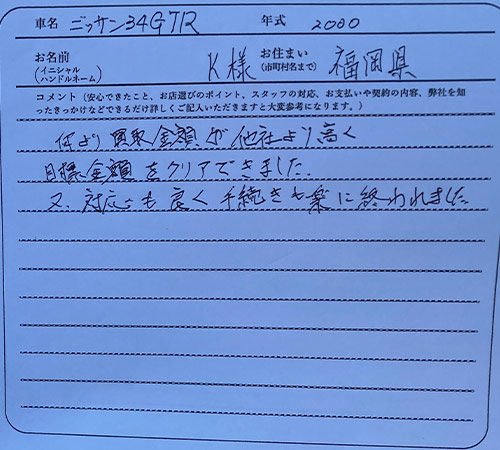 車名 ニッサン34GTR 年式 2000
お名前 K様 お住まい 福岡県
(イニシャル (市町村名まで)
ハンドルネーム)
コメント(安心できたこと、お店選びのポイント、スタッフの対応、お支払いや契約の内容、弊社を知
ったきっかけなどできるだけ詳しくご記入いただきますと大変参考になります。)
何より買取金額が他社より高く
目標金額をクリアできました.
又、対応も良く手続きも楽に終われました